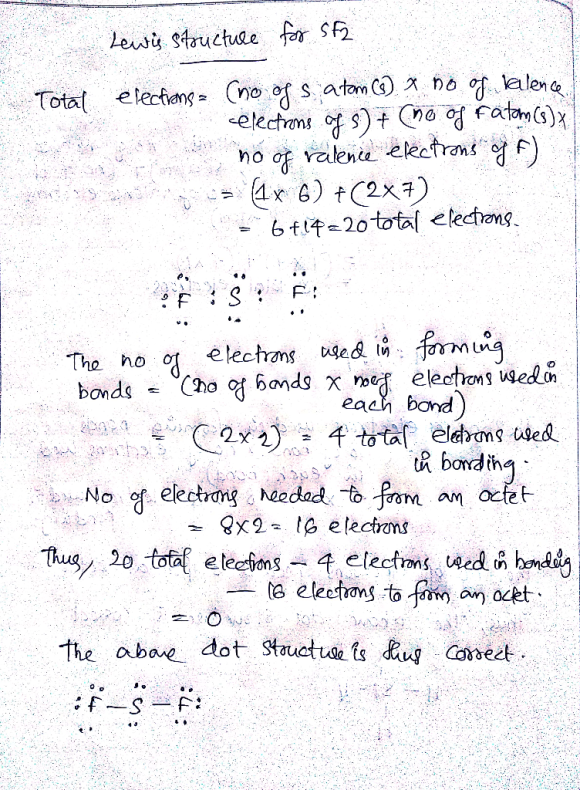 Lewis structure for SF2
Total electrons = (no of S atom(s) x no of valence
electrons of S) + (no of F atom(s) x
no of valence electrons of F)
= (1 x 6) + (2x7)
= 6+14=20 total electrons.
:F : S : F:
The no of electrons used in forming
bonds = (no of bonds x no of electrons used in
each bond)
= (2x2) = 4 total eletrons used
in bonding.
No of electrons needed to form an octet
= 8x2 = 16 electrons
Thus, 20 total elections - 4 electrons used in bonding
- 16 electrons to form an octet.
= 0
The above dot structure is thus correct.
:F-S-F: